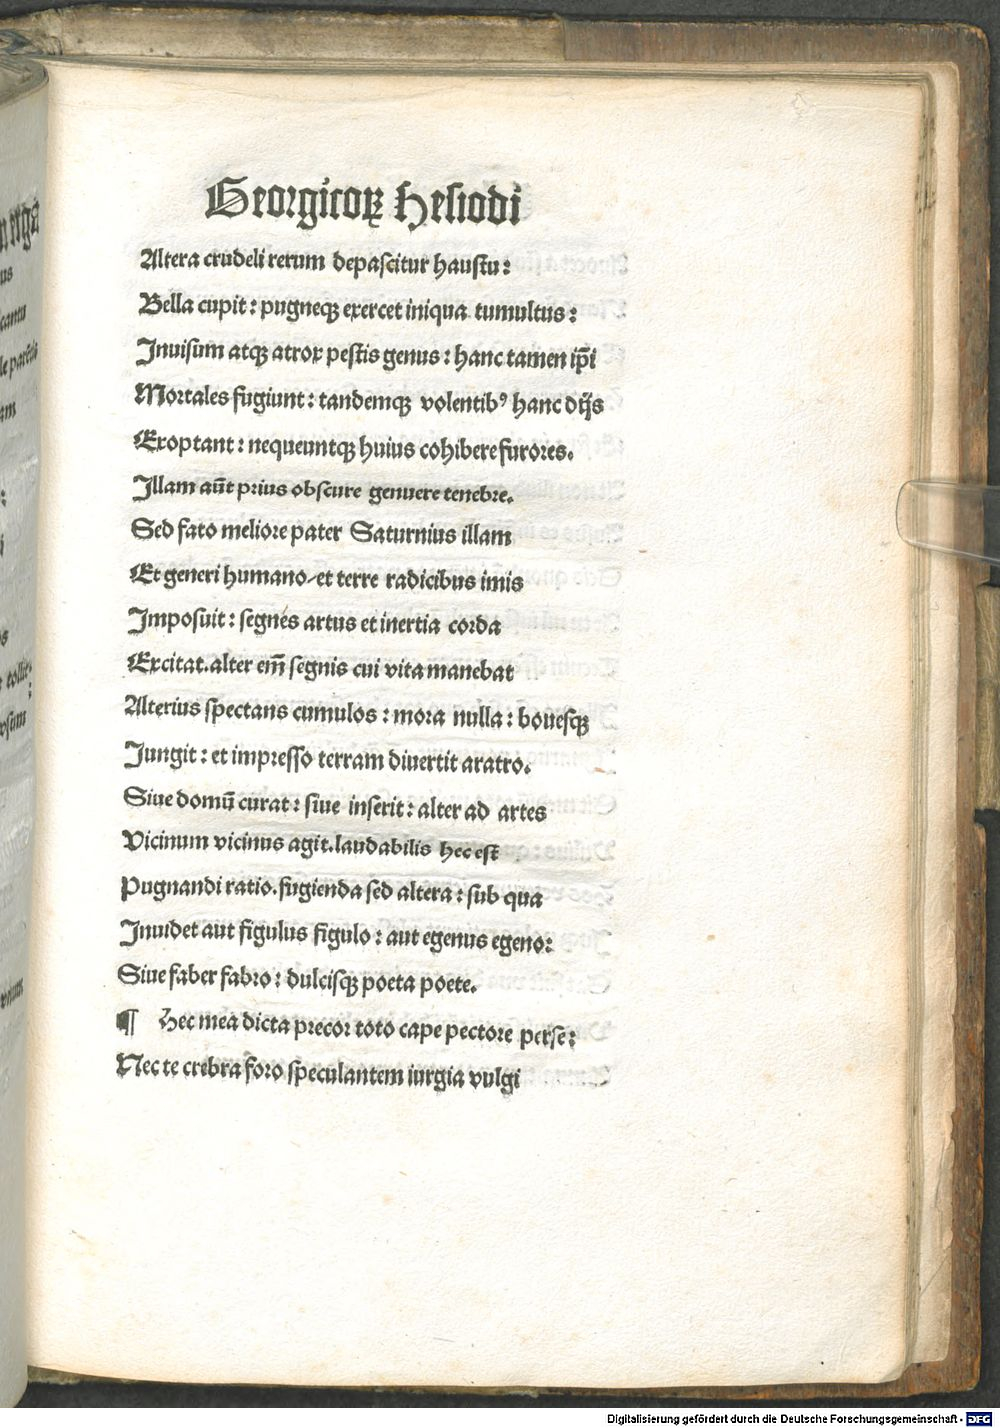 Georgicoꝝ Hesiodi
Altera crudeli rerum depascitur haustu:
Bella cupit: pugneqꝫ exercet iniqua tumultus:
Inuisum atqꝫ atrox pestis genus: hanc tamen ip̄i
Mortales fugiunt: tandemqꝫ volentibꝰ hanc dijs
Exoptant: nequeuntqꝫ huius cohibere furores.
Illam aūt prius obscure genuere tenebre.
Sed fato meliore pater Saturnius illam
Et generi humano/et terre radicibus imis
Imposuit: segnes artus et inertia corda
Excitat.alter em̄ segnis cui vita manebat
Alterius spectans cumulos: mora nulla: bouesqꝫ
Jungit: et impresso terram diuertit aratro.
Siue domū curat: siue inserit: alter ad artes
Vicinum vicinus agit.laudabilis hec est
Pugnandi ratio.fugienda sed altera: sub qua
Inuidet aut figulus figulo: aut egenus egeno:
Siue faber fabro: dulcisqꝫ poeta poete.
¶ Hec mea dicta precor toto cape pectore perse:
Nec te crebra foro speculantem iurgia vulgi
Digitalisierung gefördert durch die Deutsche Forschungsgemeinschaft - DFG